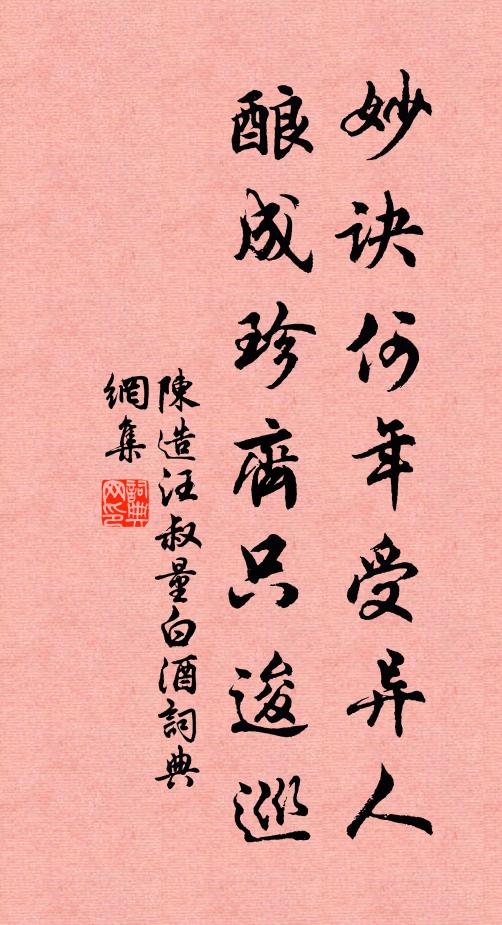 妙诀何年受异人
酿成珍齊只逡巡
陳造汪叔量白酒詞典
網集
詞典網印